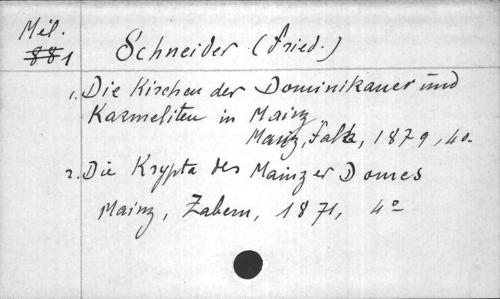 Mil.
881
Schneider (Fried.)
1. Die Kirchen der Dominikaner und
Karmeliten in Mainz
Mainz, Falk, 1879, 4o.
2. Die Krypta des Mainzer Domes
Mainz, Zabern, 1871, 4o